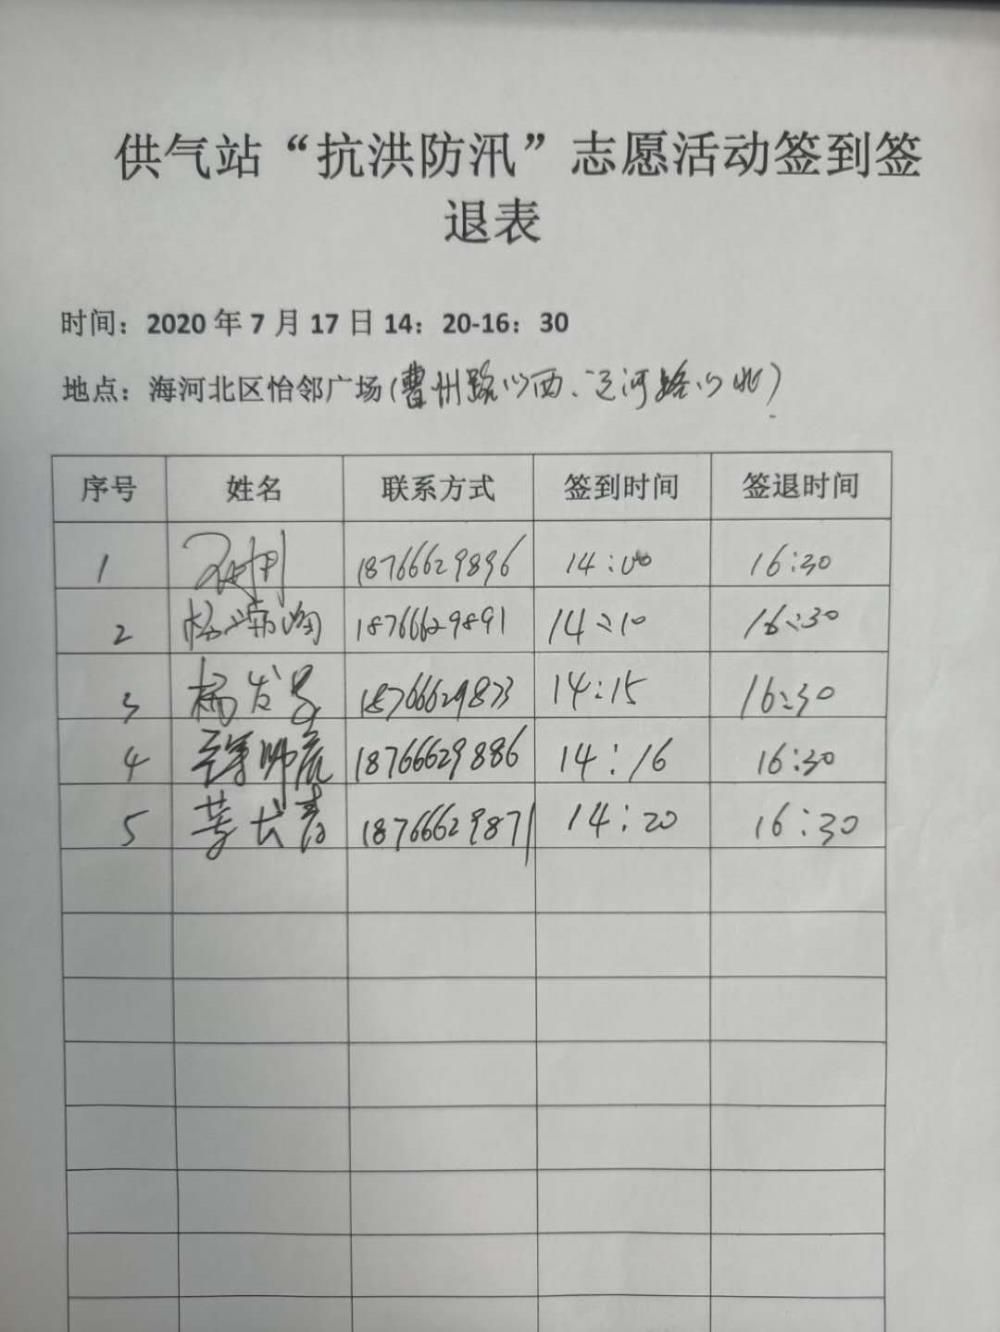 供气站“抗洪防汛”志愿活动签到签
退表
时间：2020 年 7 月 17 日 14：20-16：30
地点：海河北区怡邻广场(曹州路以西、运河路以北)
序号 姓名 联系方式 签到时间 签退时间
1 18766629896 14:00 16:30
2 18766629891 14:10 16:30
3 杨发号 18766629873 14:15 16:30
4 18766629886 14:16 16:30
5 李长青 18766629871 14:20 16:30